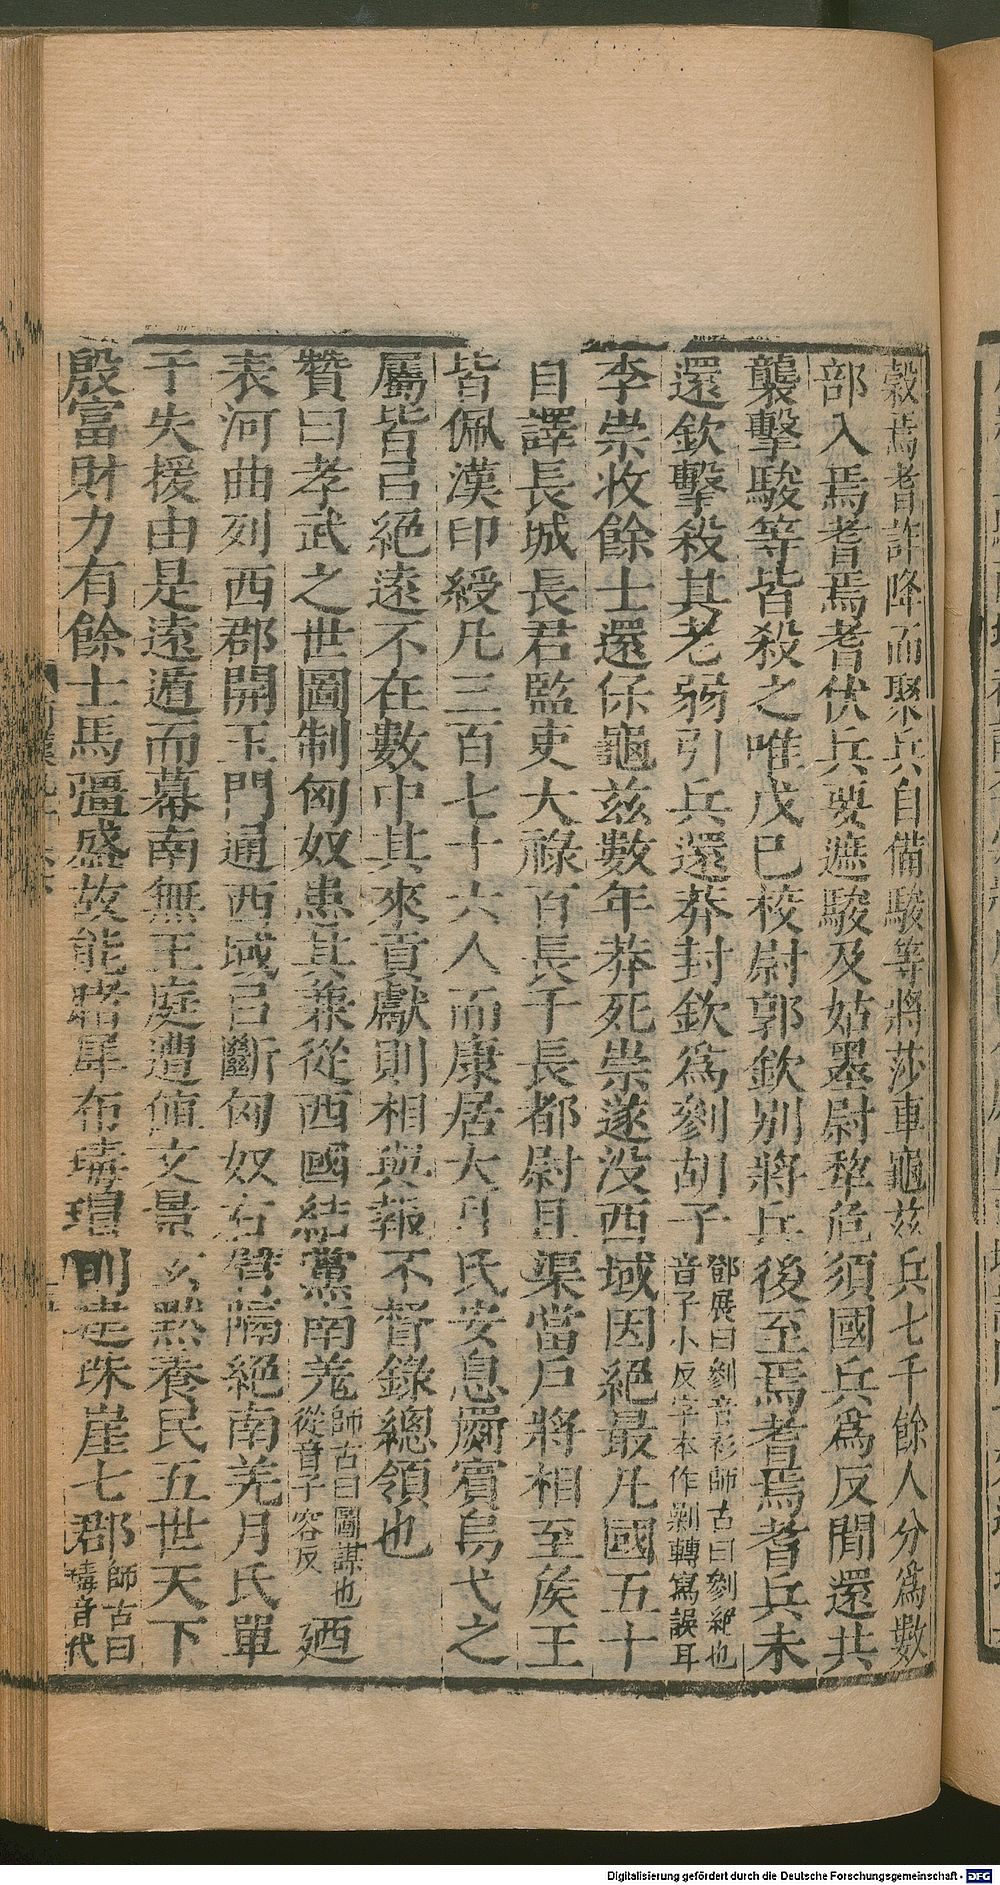 穀焉耆詐降而聚兵自備駿等將莎車龜兹兵七千餘人分爲數
部入焉耆焉耆伏兵要遮駿及姑墨尉犂危須國兵爲反閒還共
襲擊駿等皆殺之唯戊巳校尉郭欽别將兵後至焉耆焉耆兵未
還欽擊殺其老弱引兵還莽封欽爲剼胡子
鄧展曰剼音衫師古曰剼絶也
音子小反字本作剿轉寫誤耳
李崇收餘士還保龜兹數年莽死崇遂没西域因絶最凡國五十
自譯長城長君監吏大祿百長千長都尉且渠當戶將相至矦王
皆佩漢印綬凡三百七十六人而康居大月氏安息罽賓烏弋之
屬皆㠯絶遠不在數中其來貢獻則相與報不督錄總領也
贊曰孝武之世圖制匈奴患其兼從西國結黨南羌
師古曰圖謀也
從音子容反
廼
表河曲列西郡開玉門通西域㠯斷匈奴右臂隔絶南羌月氏單
于失援由是遠遁而幕南無王庭遭値文景玄默養民五世天下
殷富財力有餘士馬彊盛故能睹犀布瑇瑁則建珠崖七郡
師古曰
瑇音代
Digitalisierung gefördert durch die Deutsche Forschungsgemeinschaft - DFG